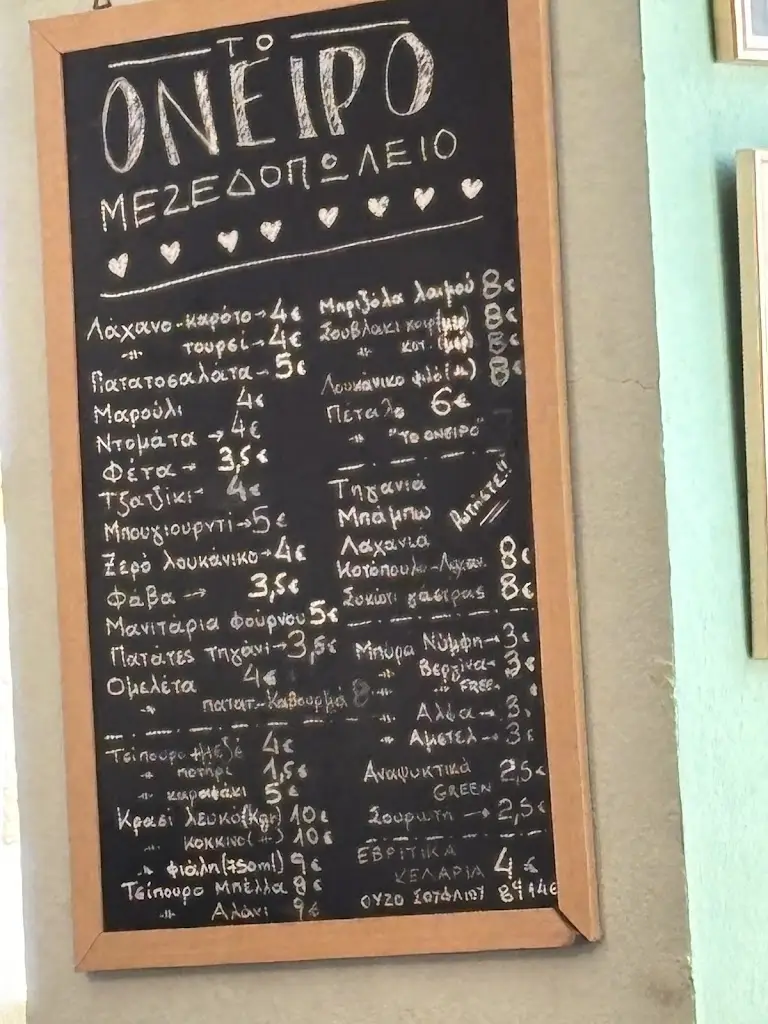 ΤΟ
ΟΝΕΙΡΟ
ΜΕΖΕΔΟΠΩΛΕΙΟ
Λάχανο-καρότο→4€
-//- τουρσί→4€
Πατατοσαλάτα→5€
Μαρούλι 4€
Ντομάτα→4€
Φέτα→3,5€
Τζατζίκι 4€
Μπουγιουρντί→5€
Ξερό λουκάνικο→4€
Φάβα→3,5€
Μανιτάρια φούρνου 5€
Πατάτες τηγάνι→3,5€
Ομελέτα 4€
-//- πατατ.-Καβουρμά 8
Τσίπουρο+Μεζέ 4€
-//- ποτήρι 1,5€
-//- καραφάκι 5€
Κρασί λευκό(kgr) 10€
-//- κόκκινο(-//-) 10€
-//- φιάλη(750ml) 9€
Τσίπουρο Μπέλλα 8€
-//- Αλάνι 9€
Μπριζόλα λαιμού 8€
Σουβλάκι χοιρ(μερ) 8€
-//- κοτ.(μερ) 8€
Λουκάνικο 8€
Πέταλο 6€
-//- "ΤΟ ΟΝΕΙΡΟ"
Τηγανιά
Μπάμπω
Ρωτήστε!!
Λαχανιά
Κοτόπουλο-Λαχαν. 8€
Συκώτι γάστρας 8€
Μπύρα Νύμφη→3€
-//- Βεργίνα→3€
-//- -//- FREE
-//- Άλφα→3€
-//- Άμστελ→3€
Αναψυκτικά 2,5€
GREEN
Σουρωτή→2,5€
ΕΒΡΙΤΙΚΑ
ΚΕΛΑΡΙΑ 4€
ΟΥΖΟ 14€